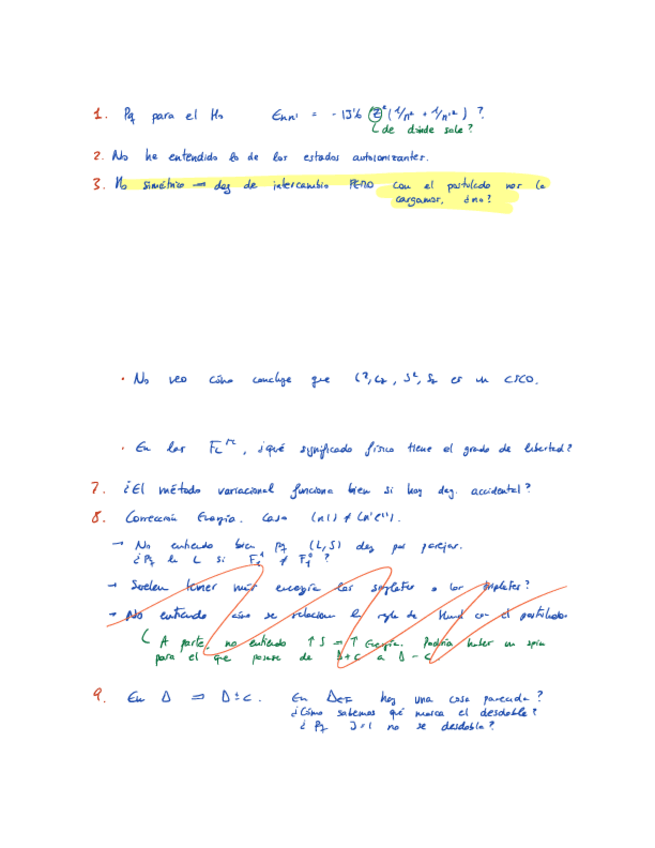 1. Pq para el H₀ Enn' = -13'6 Z² (1/n² + 1/n'²) ?
de dónde sale?
2. No he entendido lo de los estados autoionizantes.
3. H₀ simétrico ⇒ deg de intercambio PERO con el postulado nos lo
cargamos, ¿no?
• No veo cómo concluye que L², Lz, S², Sz es un CSCO.
• En los , ¿qué significado físico tiene el grado de libertad?
7. ¿El método variacional funciona bien si hay deg. accidental?
8. Corrección Energía. Caso (nl) ≠ (n'l').
→ No entiendo bien pq (L,S) deg por parejas.
¿Pq la L si ≠ ?
→ Suelen tener más energía los singletes o los tripletes?
→ No entiendo cómo se relaciona la regla de Hund con el postulado.
A parte, no entiendo ↑S ⇒ ↑Energía. Podría haber un spin
para el que pasase de Δ+c a Δ-c
9. En Δ ⇒ Δ±c. En ΔEF hay una cosa parecida?
¿Cómo sabemos qué marca el desdoble?
¿Pq J=1 no se desdobla?